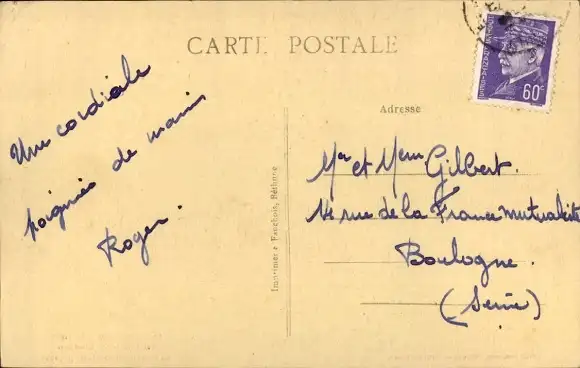 CARTE POSTALE
Une cordiale
poignée de mains
Roger.
Imprimerie Fauchois, Béthune
Adresse
60c
Mr et Mme Gilbert.
14 rue de la France mutualiste
Boulogne.
(Seine)